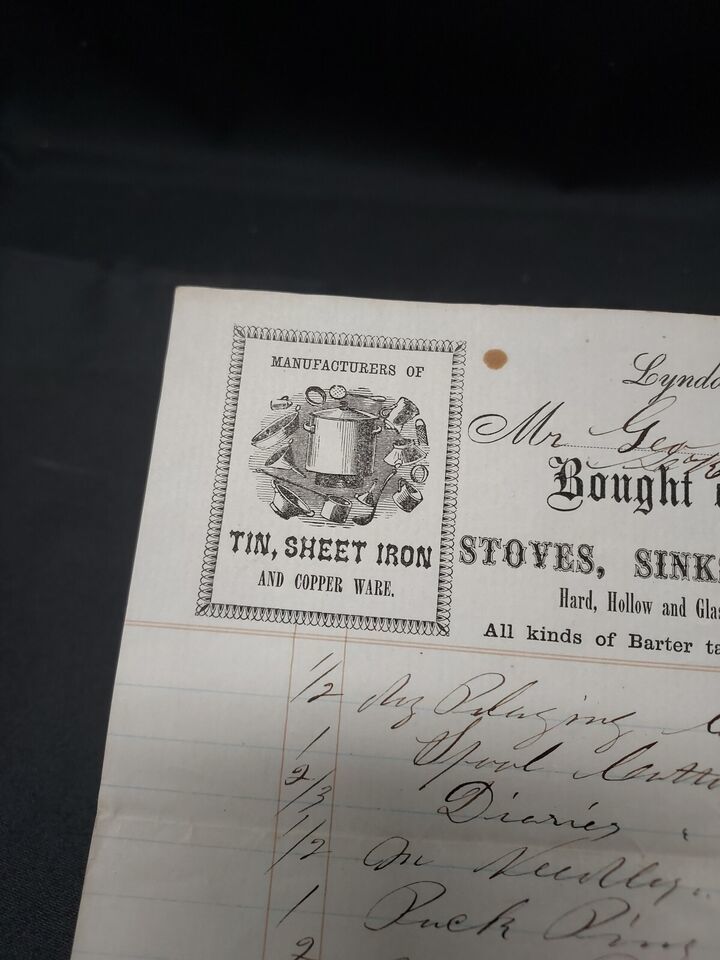 MANUFACTURERS OF
TIN, SHEET IRON
AND COPPER WARE.
Lyndo
Mr Geo
Bought
STOVES, SINKS
Hard, Hollow and Glas
All kinds of Barter ta
1/2
1 Spool
2/3 Diaries
1/2 Needles
1 Pack Pins
2